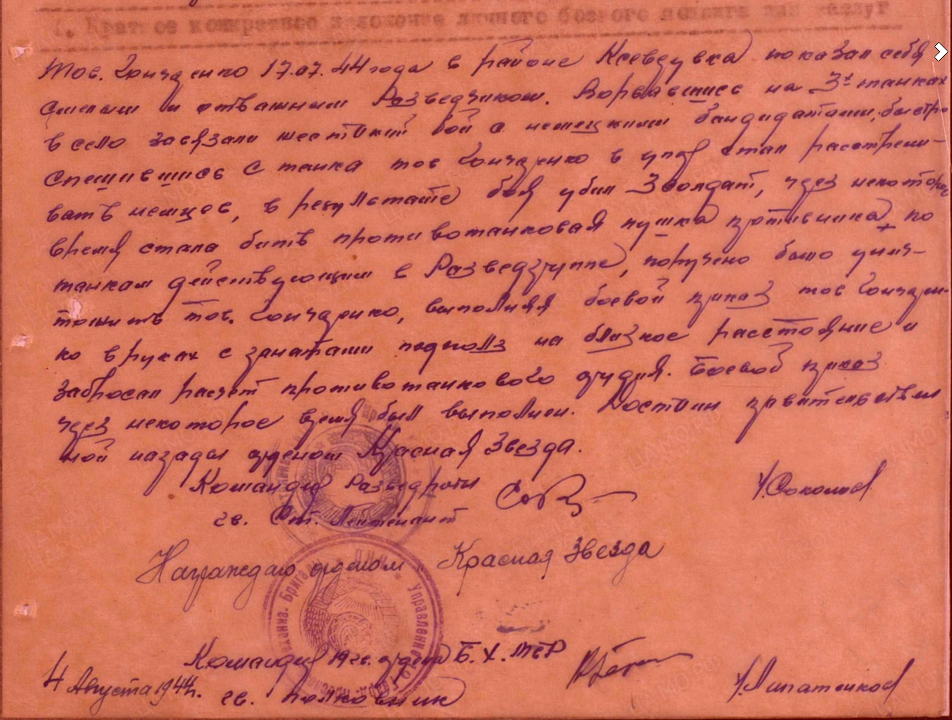 I. Краткое конкретное изложение личного боевого подвига или заслуг
Тов. Гончаренко 17.07.44 года в районе показал себя
смелым и отважным Разведчиком. Ворвавшись на 3х танках
в село завязали жестокий бой с немецкими бандидатами, быстро
спешившись с танка тов Гончаренко в упор стал расстрели-
вать немцев, в результате боя убил 3 солдат, через некотор
время стала бить противотанковая пушка противника, по
танкам действующим в Разведгруппе, поручено было унич-
тожить тов. Гончаренко, выполняя боевой приказ тов Гончарен-
ко в руках с гранатами подполз на близкое расстояние и
забросал расчет противотанкового орудия. Боевой приказ
через некоторое время был выполнен. Достоин правительствен
ной награды орденом Красная Звезда.
Командир Разведроты
гв. Ст. Лейтенант /Соколов/
Награждаю орденом Красная Звезда
Командир 19 гв. МБР
гв. полковник /Липатенков/
4 Августа 1944г.